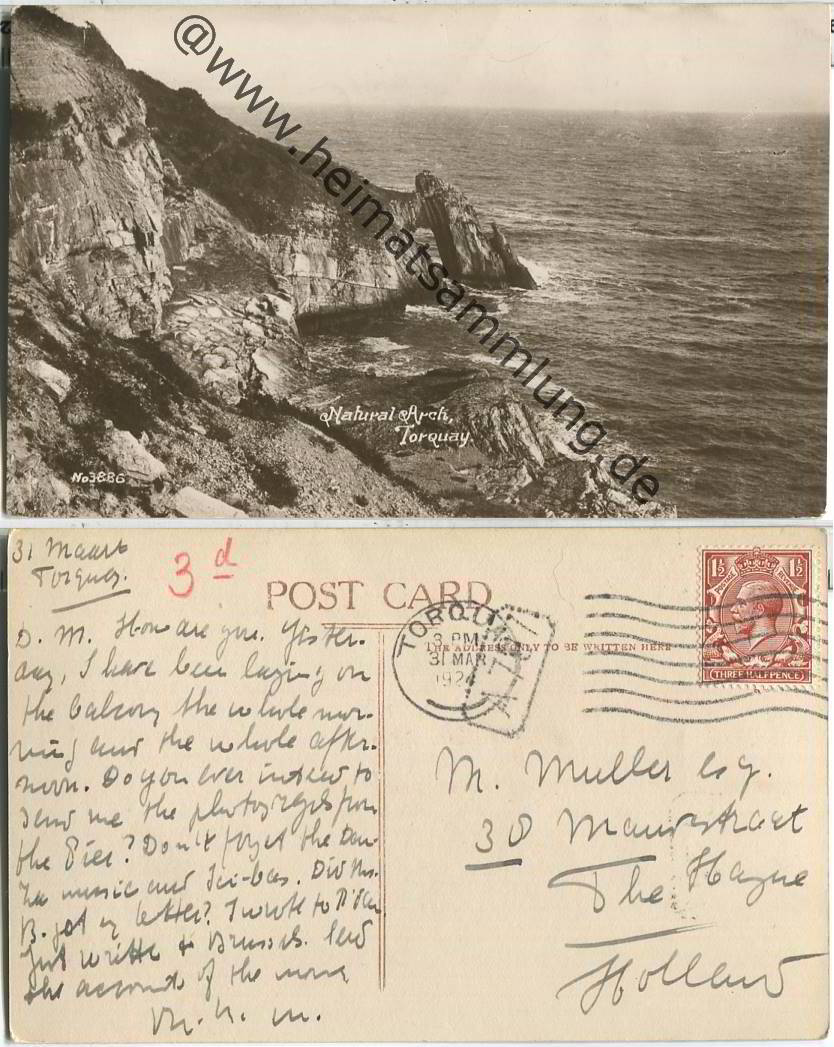 @www.heimatsammlung.de
Natural Arch,
Torquay.
No 3886
31 Maart
Torquay.
3d
POST CARD
THE ADDRESS ONLY TO BE WRITTEN HERE
TORQUAY
3 PM
31 MAR
192
1½ 1½
POSTAGE REVENUE
THREE HALFPENCE
D. M. How are you. Yester-
day, I have been laying on
the balcony the whole mor-
ning and the whole after-
noon. Do you ever intend to
send me the photografs from
the Pier? Don't forget the
music and
B. got my letter? I wrote to
Just write to Brussels. Send
the accounts of the
M. Muller esq.
38
The Hague
Holland